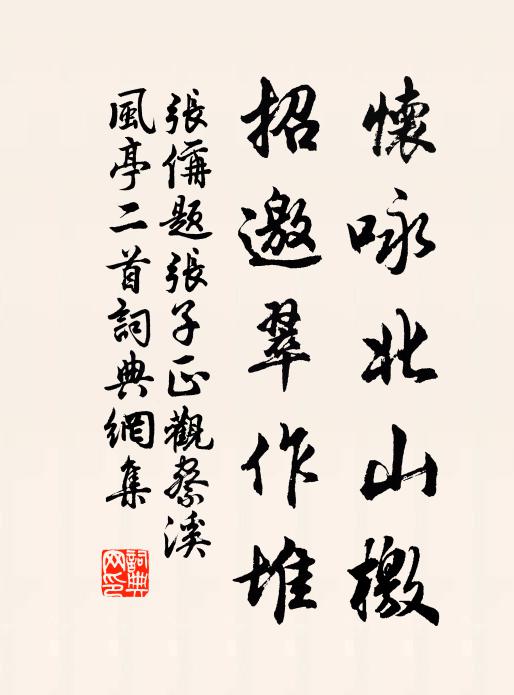 懷咏北山檄
招邀翠作堆
張侢題張子正觀察溪
風亭二首詞典網集
詞典網印